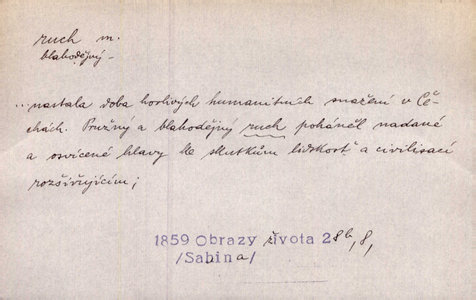 ruch m.
blahodějný -
...nastala doba horlivých humanitních snažení v Če-
chách. Pružný a blahodějný ruch poháněl nadané
a osvícené hlavy ke skutkům lidskost a civilisaci
rozšiřujícím;
1859 Obrazy života 2 8b, 8,
/Sabina/